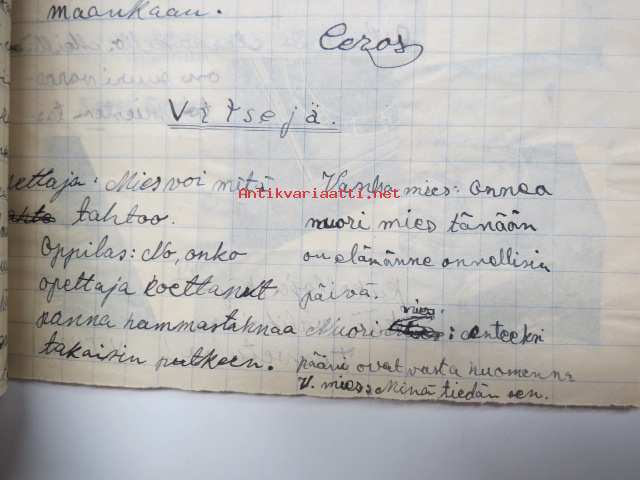 maankaan.
Eeros
Vitsejä.
Opettaja: Mies voi mitä
tahtoo.
Oppilas: No, onko
opettaja koettanut
panna hammastahnaa
takaisin putkeen.
Vanha mies: onnea
nuori mies tänään
on elämänne onnellisin
päivä.
Nuori mies: anteeksi
pääni ovat vasta huomenna
V. mies: Minä tiedän sen.
Antikvariaatti.net
Antikvariaatti.net